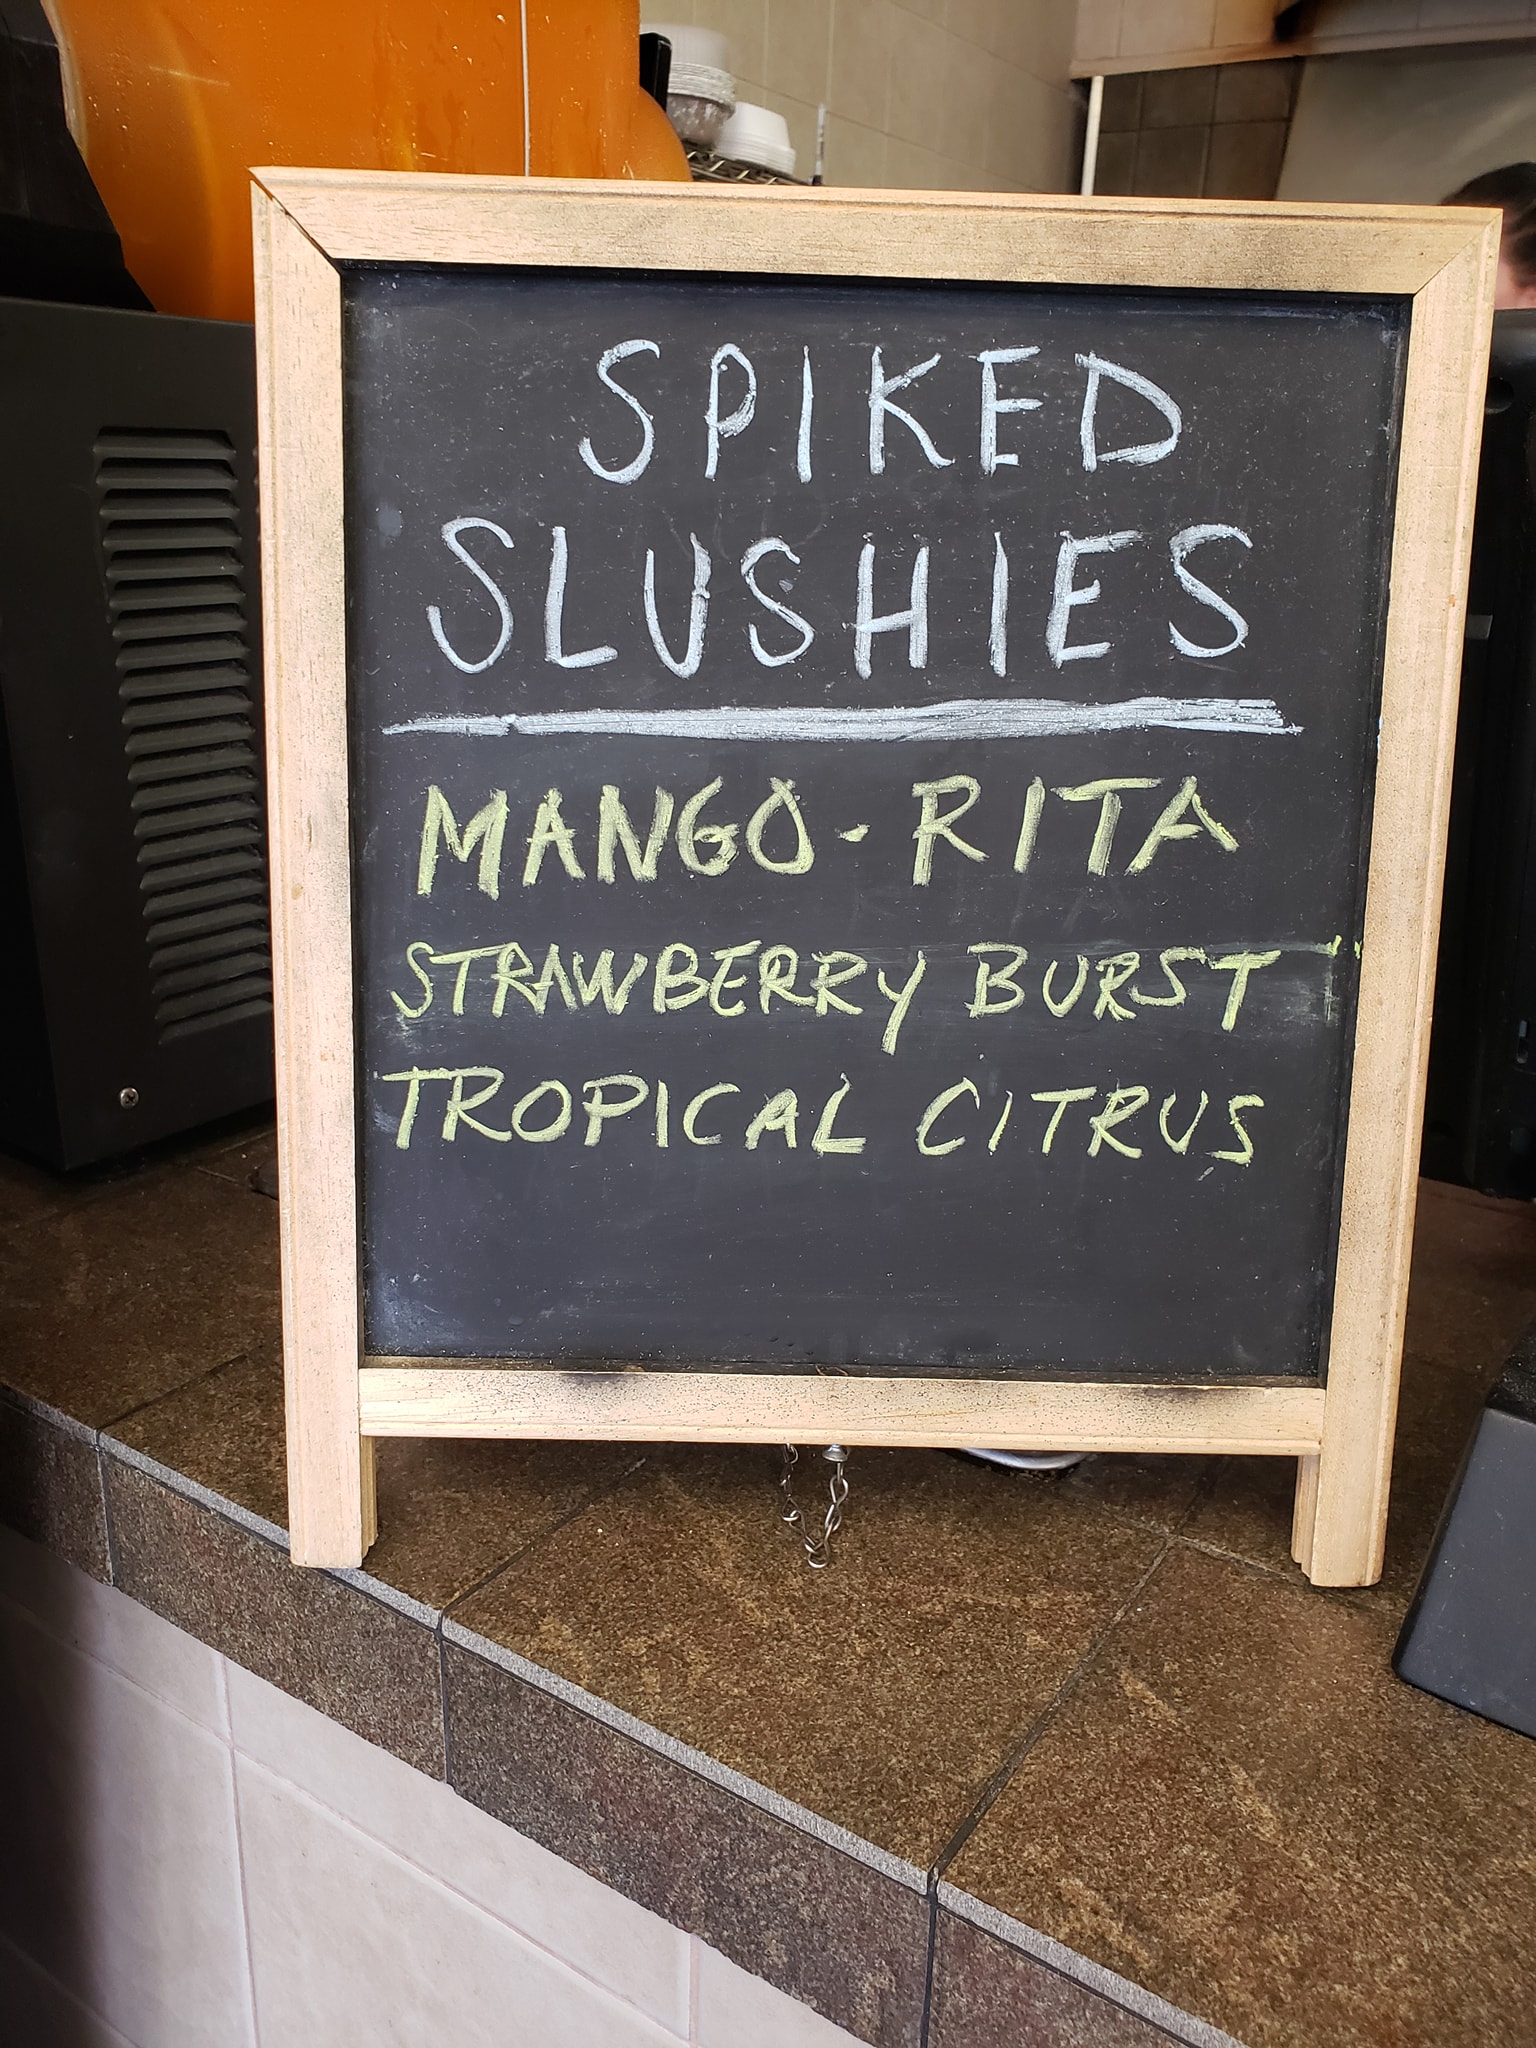 SPIKED
SLUSHIES
MANGO-RITA
STRAWBERRY BURST
TROPICAL CITRUS